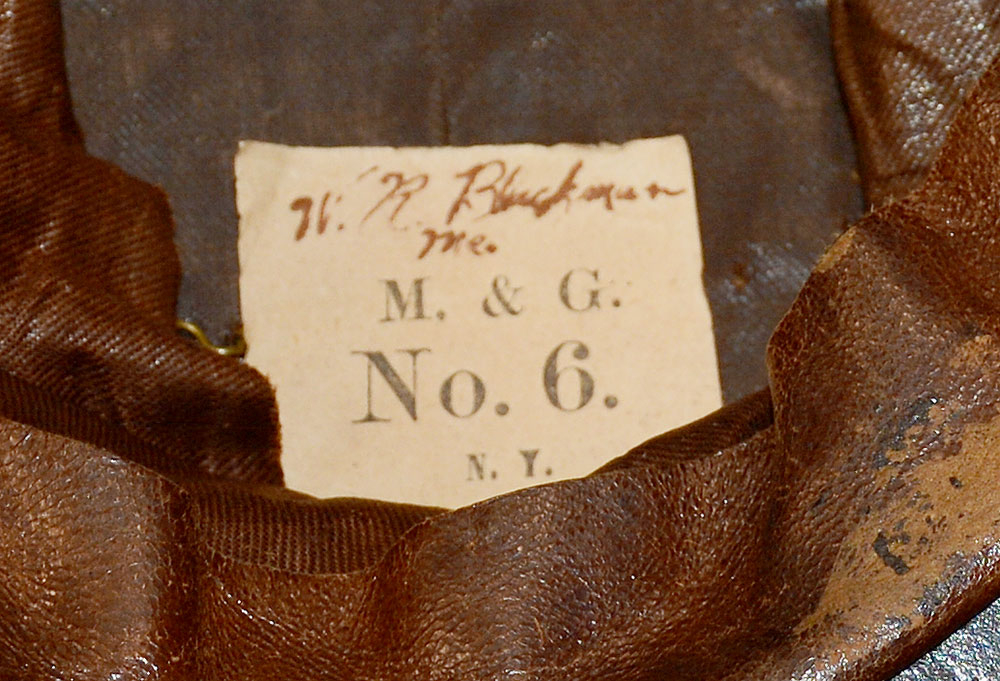 W. R. Blackman
Me.
M. & G.
No. 6.
N. Y.